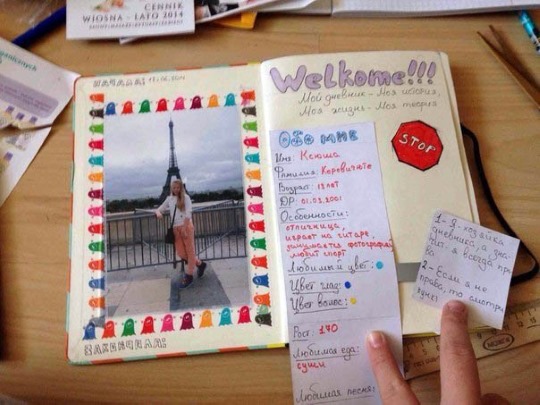 CENNIK
WIOSNA - LATO 2014
НАЧАЛА:
ЗАКОНЧИЛА:
Welkome!!!
Мой дневник - Моя история,
Моя жизнь - Моя теория
STOP
Обо мне
Имя: Ксюша
Фамилия:
Возраст: 13 лет
ДР: 01.03.2001
Особенности:
отличница,
играет на гитаре,
занимается фотографией
любит спорт
Любимый цвет:
Цвет глаз:
Цвет волос:
Рост: 170
Любимая еда:
суши
Любимая песня:
1- Я- хозяйка
дневника, а зна-
чит я всегда пра-
ва
2- Если я не
права, то смотри